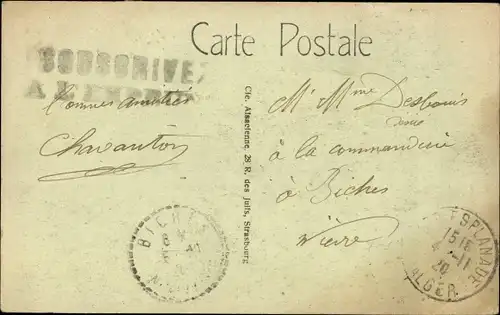 Carte Postale
SOUSCRIVEZ
A L'EMPRUNT
Bonnes amitiés
Chavanton
Cie. Alsacienne, 28 R. des Juifs, Strasbourg
Mr Mme Desbouis
à la commanderie
à Biches
Nièvre
BICHES
ESPLANADE
15 15
4 - 11
20
ALGER